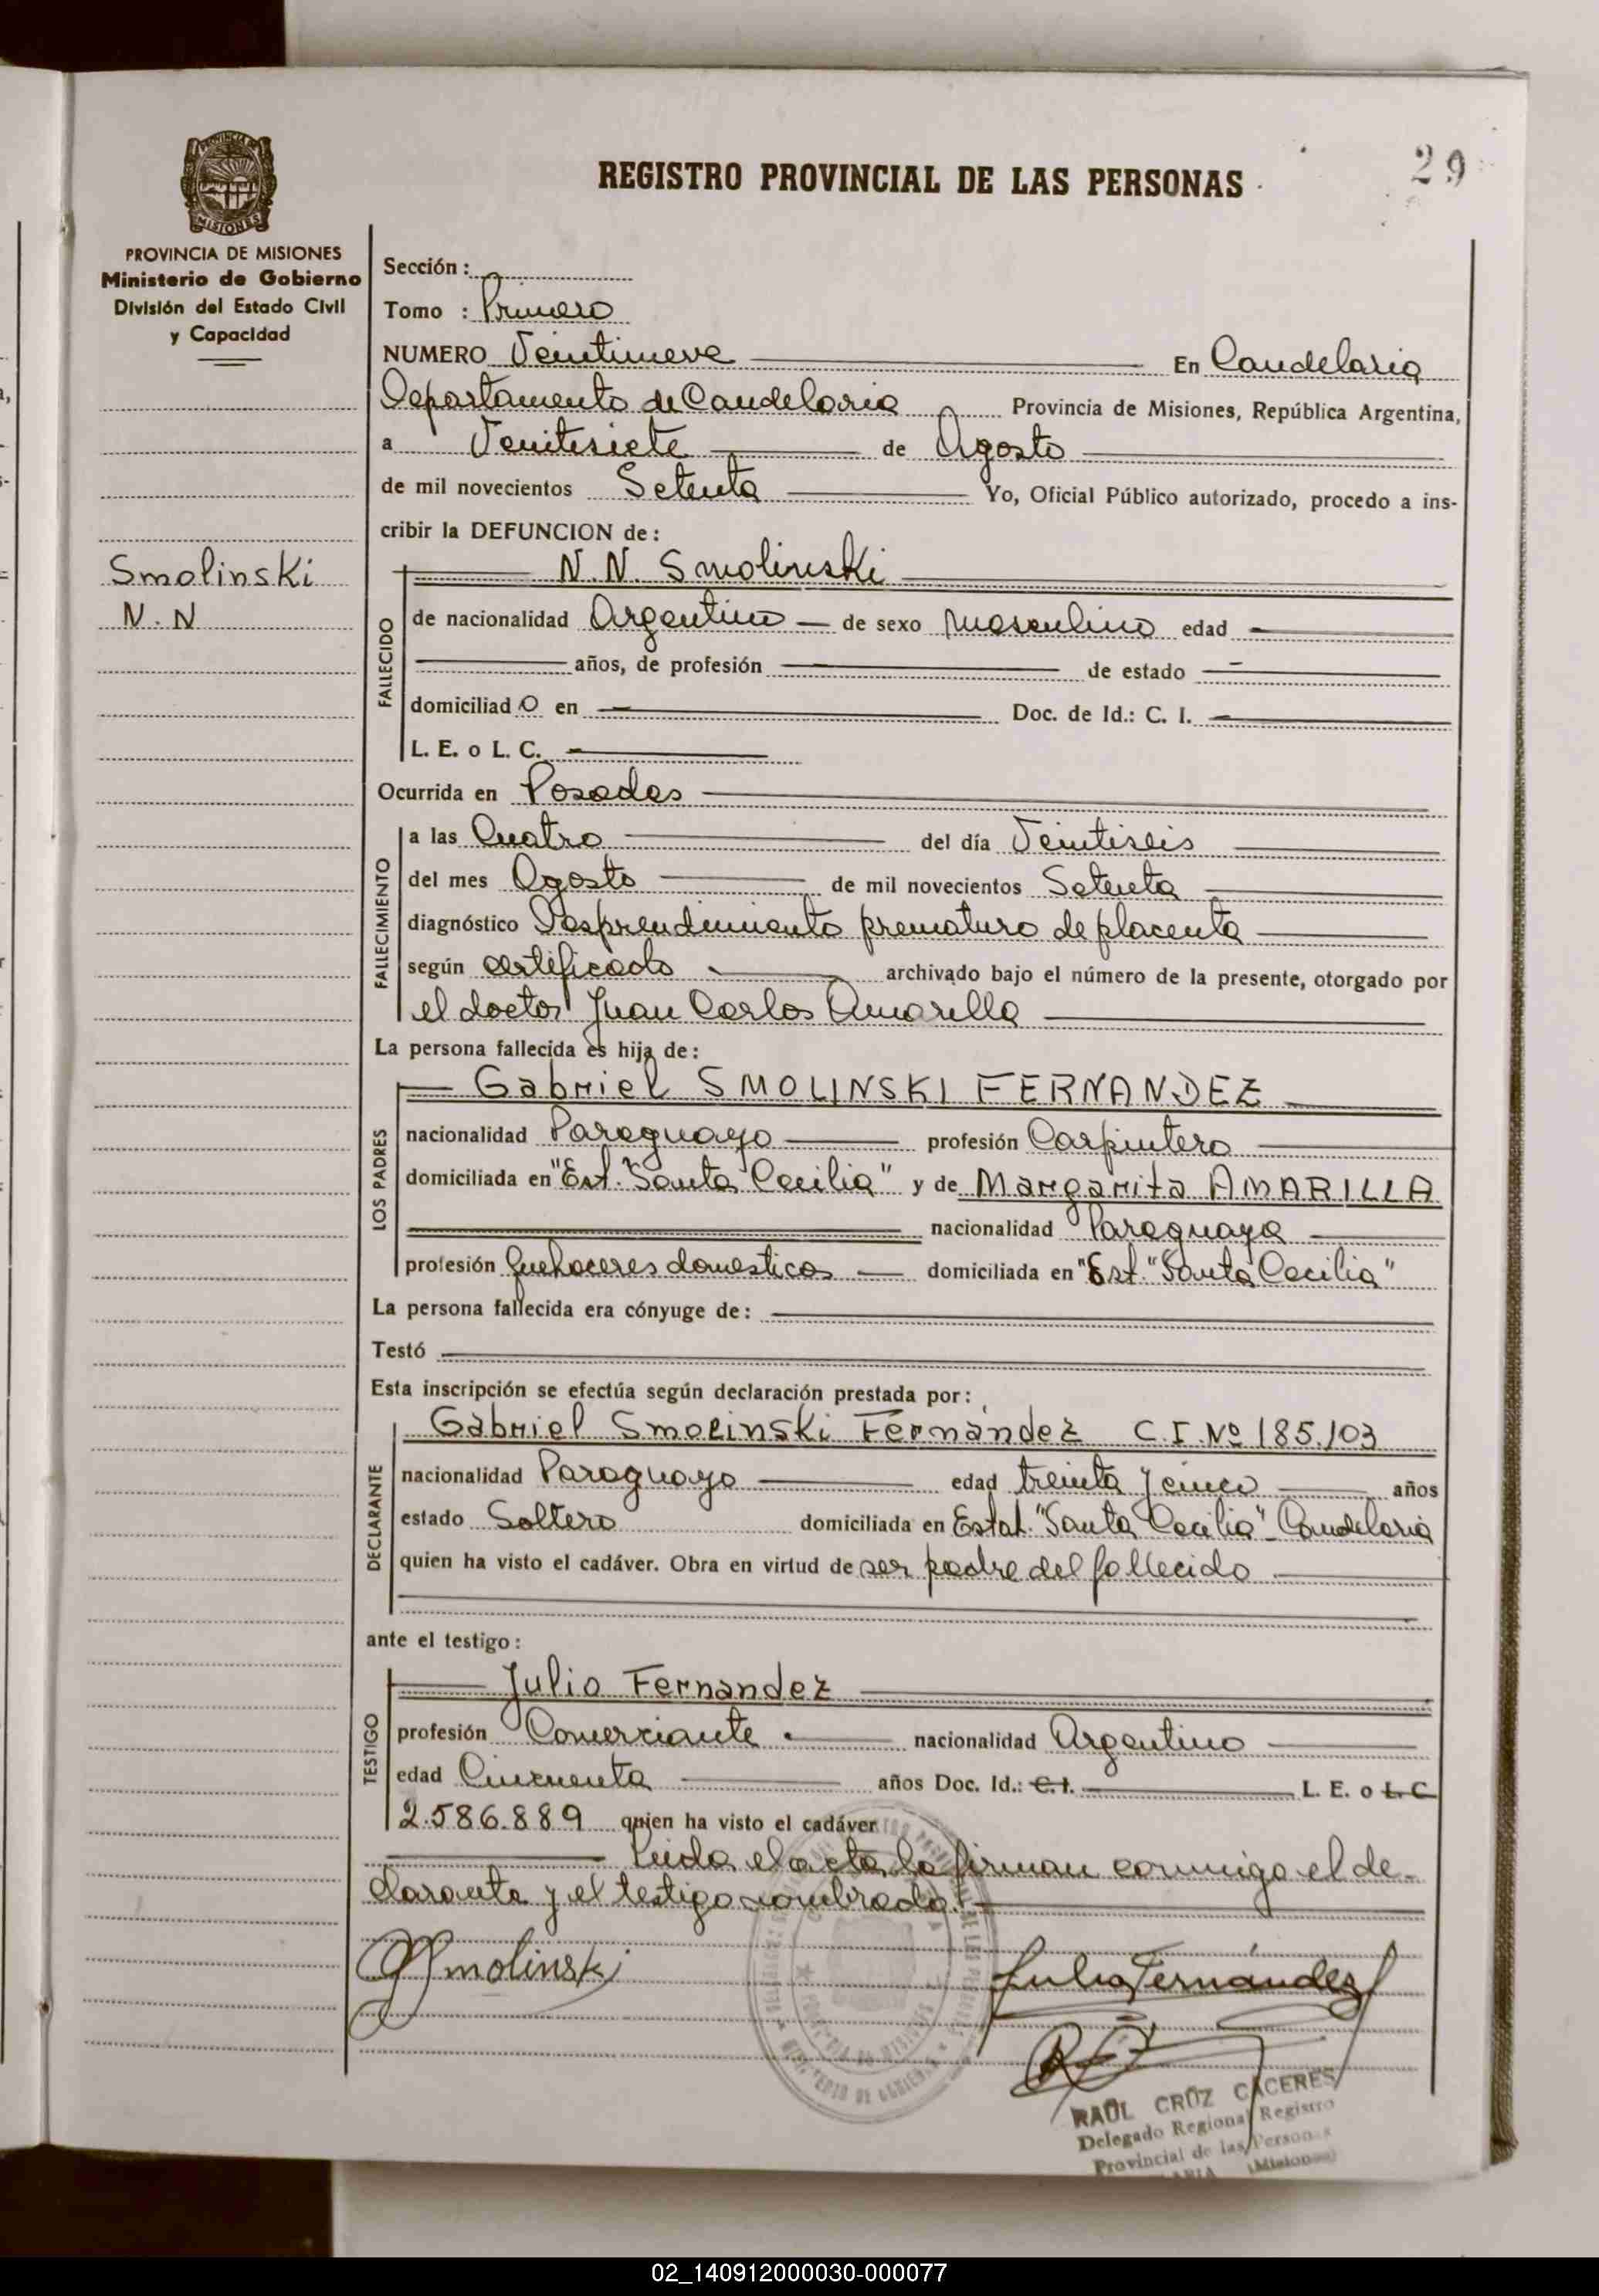 29
REGISTRO PROVINCIAL DE LAS PERSONAS
PROVINCIA DE MISIONES
MISIONES
PROVINCIA DE MISIONES
Ministerio de Gobierno
División del Estado Civil
y Capacidad
Smolinski
N.N
Sección:
Tomo : Primero
NUMERO Veintinueve En Candelaria
Departamento de Candelaria Provincia de Misiones, República Argentina,
a Veintisiete de Agosto
de mil novecientos Setenta Yo, Oficial Público autorizado, procedo a ins-
cribir la DEFUNCION de:
N.N. Smolinski
FALLECIDO
de nacionalidad Argentino — de sexo masculino edad —
años, de profesión — de estado —
domiciliado en — Doc. de Id.: C. I. —
L. E. o L. C. —
Ocurrida en Posadas
FALLECIMIENTO
a las Cuatro del día Veintiseis
del mes Agosto de mil novecientos Setenta
diagnóstico Desprendimiento prematuro de placenta
según certificado archivado bajo el número de la presente, otorgado por
el doctor Juan Carlos Amarilla
La persona fallecida es hija de:
LOS PADRES
Gabriel SMOLINSKI FERNANDEZ
nacionalidad Paraguayo profesión Carpintero
domiciliada en "Est. "Santa Cecilia" y de Margarita AMARILLA
nacionalidad Paraguaya
profesión Quehaceres domesticos — domiciliada en "Est. "Santa Cecilia"
La persona fallecida era cónyuge de:
Testó
Esta inscripción se efectúa según declaración prestada por:
DECLARANTE
Gabriel Smolinski Fernández C.I. Nº 185.103
nacionalidad Paraguayo edad treinta y cinco años
estado Soltero domiciliada en Estab. "Santa Cecilia" - Candelaria
quien ha visto el cadáver. Obra en virtud de ser padre del fallecido
ante el testigo:
TESTIGO
Julio Fernandez
profesión Comerciante nacionalidad Argentino
edad Cincuenta años Doc. Id.: C.I. L. E. o L. C
2.586.889 quien ha visto el cadáver
Leida el acta, la firman conmigo el de-
clarante y el testigo nombrado.
GSmolinski
Julio Fernández
RAÚL CRUZ CACERES
Delegado Regional Registro
Provincial de las Personas
(Misiones)
02_140912000030-000077